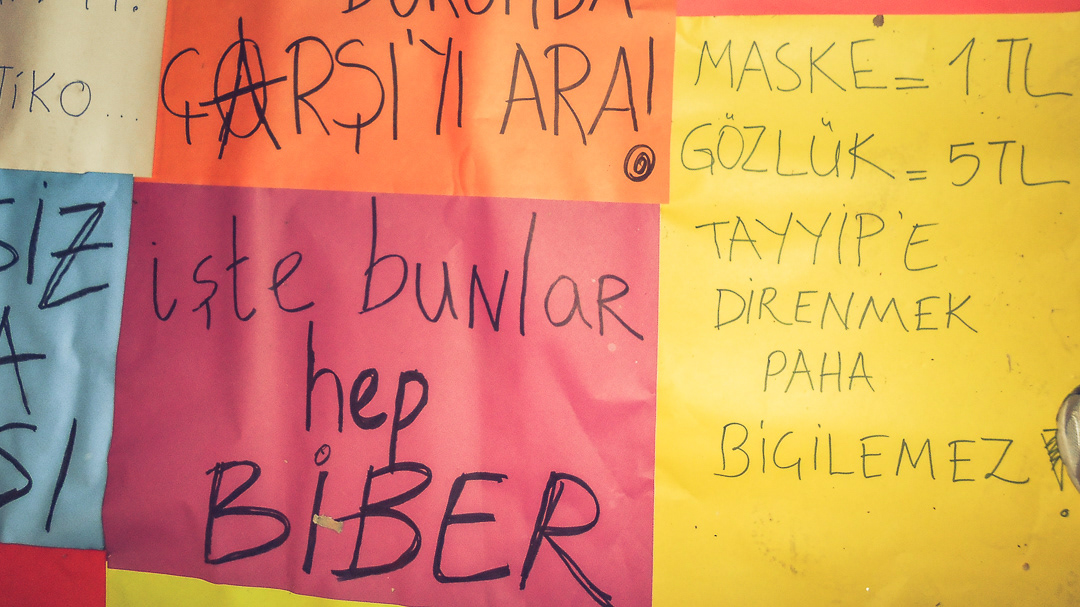 TİKO...
DURUMDA
ÇARŞI'YI ARA!
MASKE = 1 TL
GÖZLÜK = 5 TL
TAYYİP'E
DİRENMEK
PAHA
BİGİLEMEZ
SİZ
A
SI
işte bunlar
hep
BİBER